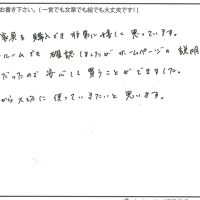 お書き下さい。（一言でも文章でも絵でも大丈夫です！）
家具を購入でき非常に嬉しく思っています。
ルームでも確認しましたがホームページの説明
だったので安心して買うことができました。
から大切に使っていきたいと思います。